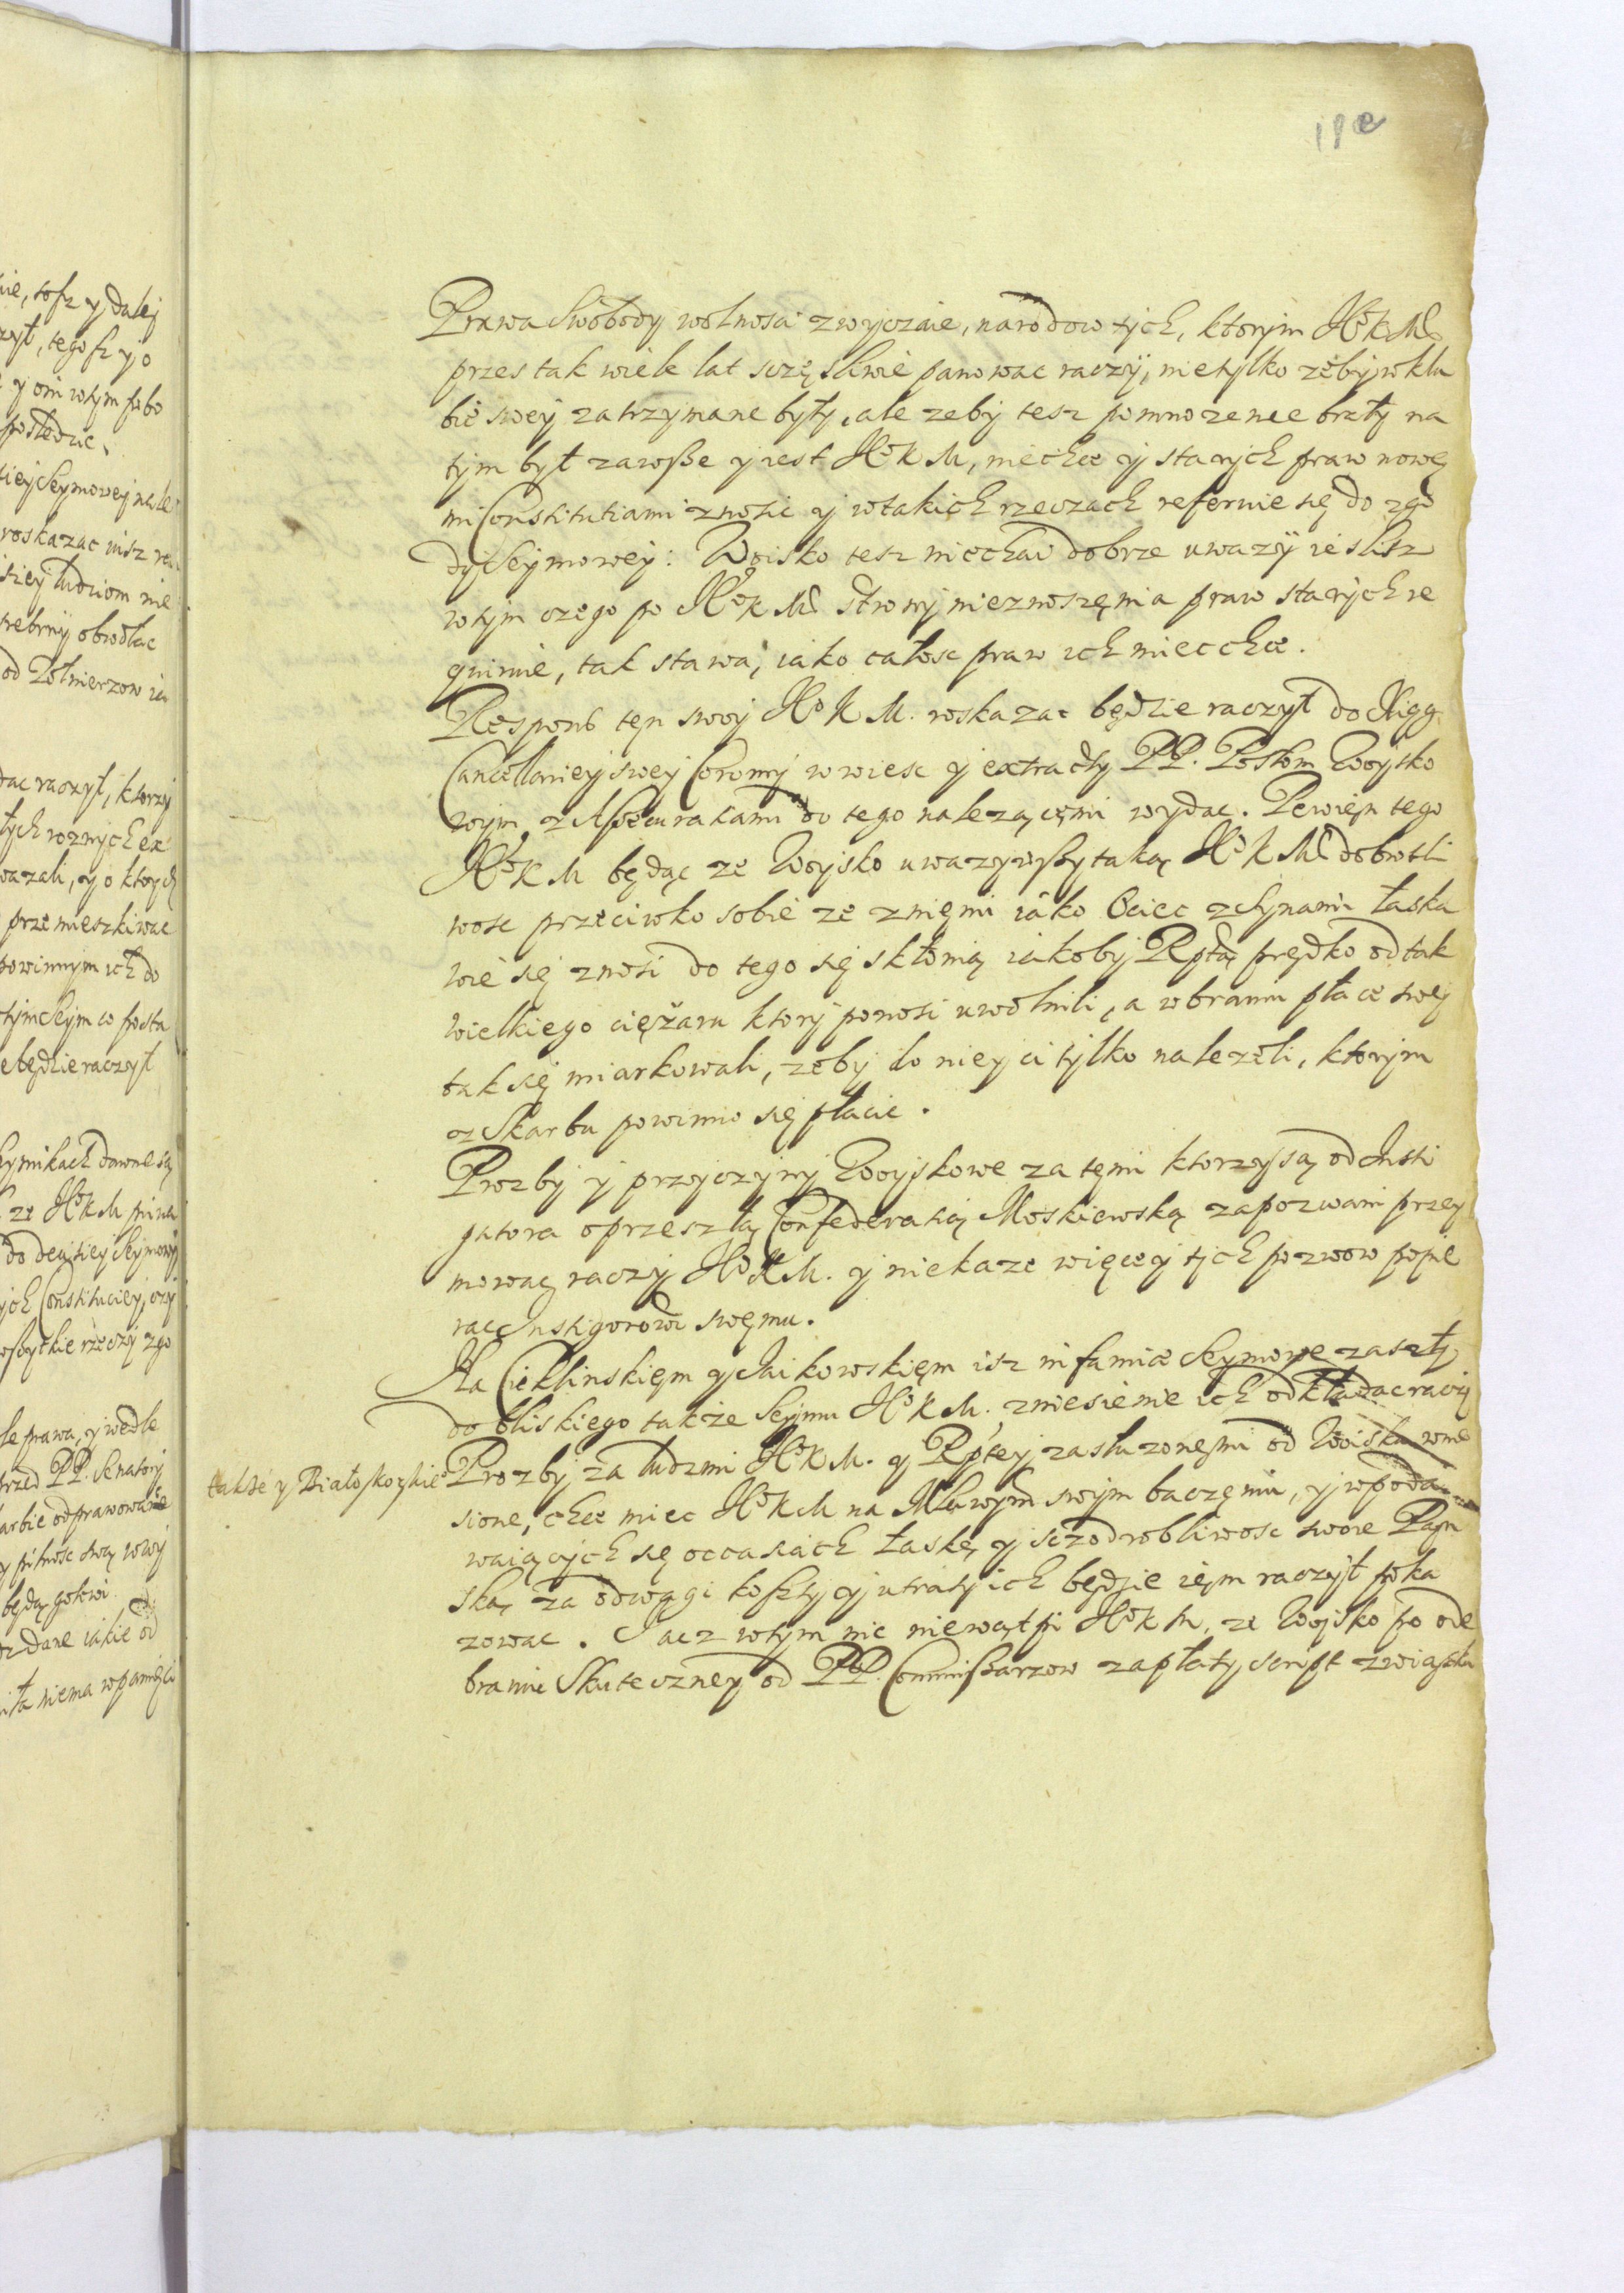 ie, tosz y dalej
rzył, tegosz y o
y oni wtym sobo
postedzic.
kiey Seymowey nale
roskazac isz re
kiey ludziom nie
trebny obwołac
od Zołnierzow
dac raczył, ktorzy
tych roznych ex
wazali, y o ktorych
przemieszkiwac
powinnym ich do
tym Seym co posta
e będzie raczył
Seymikach dawne są
ze Hº K M
do decisiey Seymowy
ych Constituciey, czy
wszytkie rzeczy zgo
le prawa, y wedle
przed PP. Senatory
arbie odprawowanie
y pilnosc swą
będą gotowi
dane iakie od
ita niema wpamięci
Prawa Swobody wolnosci zwyczaie, narodow tych, ktorym Hº K Mć
przes tak wiele lat sczęsliwie panowac raczy, nietylko zeby w klu
bie swey zatrzymane były, ale zeby tesz pomnozenie brały na
tym był zawsze y iest Hº K M, niechce y starych praw nowę
mi Constitutiami znosic y wtakich rzeczach referuie się do zgo
dy Seymowey: Woisko tesz niechai dobrze uwazy iesli sz
wtym czego po Hº K Mć strony nieznoszęnia praw starych re
quiruie, tak stawa, iako całosc praw ich miec chce.
Respons tęn swoy Hº K M. roskazac będzie raczył do Xiąg
Cancellariey swey Coronny wwiesc y extracty PP. Posłom Woysko
wym z Assecuratiami do tego nalezącęmi wydac. Pewięn tego
Hº K M będąc ze Woysko uwazywszy taką Hº K Mć dobrotli
wosc przeciwko sobie ze znięmi iako Ociec z Synami łaska
wie się znosi do tego się skłonią iakoby Rptą prędko od tak
wielkiego cięzaru ktory ponosi uwolnili, a wbraniu płace swey
tak się miarkowali, zeby do niey ci tylko nalezeli, ktorym
z Skarbu powinno się płacic.
Prozby y przyczyny Woyskowe za tęmi ktorzy są od Insti
gatora o przeszłą Confederatią Moskiewską zapozwani przey
mowac raczy Hº K M. y niekaze więcey tych pozwow popie
rac Instigatorowi swęmu.
Na Cieklinskięm y Iaikowskięm isz infamiæ Seymowe zaszły,
do bliskiego takze Seymu Hº K M. zniesienie ich odkładac raczy
takze y Białoskorskie
Prozby za ludzmi Hº K M. y Rptey zasłuzonęmi od Woiska wnie
sione, chce miec Hº K M na swym baczęniu, y wpoda
waiących się occasiach łaskę y sczodrobliwosc swoie Pan
ską za odwagi koszty y utraty ich będzie ięm raczył poka
zowac. I acz wtym nic niewątpi Hº K M, ze Woysko po ode
braniu Skuteczney od PP. Commissarzow zapłaty, script związku